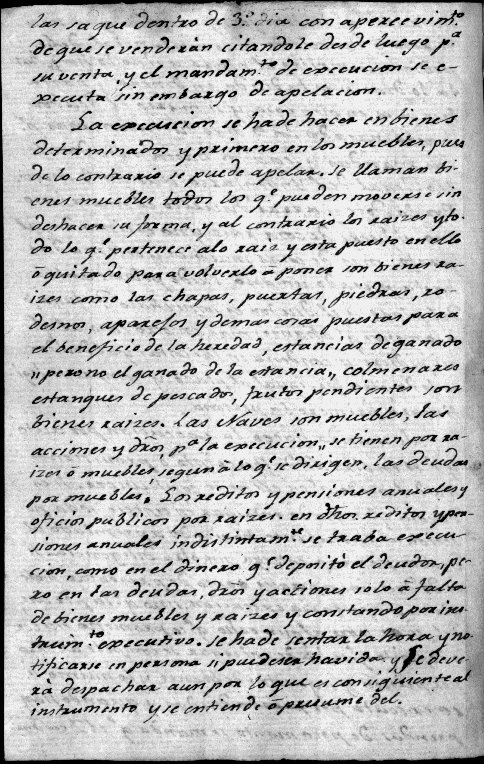 las saque dentro de 3.º dia con apercevim.to
de que se venderán citandole desde luego p.a
su venta, y el mandam.to de execucion se e-
xecuta sin embargo de apelacion.
La execucion se ha de hacer en bienes
determinados y primero en los muebles, pues
de lo contrario se puede apelar. se llaman bi-
enes muebles todos los q.e pueden moverse sin
deshacer su forma, y al contrario los raizes y to-
do lo q.e pertenece a lo raiz y esta puesto en ello
ó quitado para volverlo á poner son bienes ra-
izes como las chapas, puertas, piedras, ro-
desnos, aparejos y demas cosas puestas para
el beneficio de la heredad, estancias de ganado
,, pero no el ganado de la estancia,, colmenares
estanques de pescados, frutos pendientes son
bienes raizes. Las Naves son muebles, las
acciones y dros, p.a la execucion,, se tienen por ra-
izes ó muebles, segun á lo q.e se dirigen, las deudas
por muebles. Los reditos y pensiones anuales y
oficios publicos por raizes. en dhos. reditos y pen-
siones anuales indistintam.te se traba execu-
cion, como en el dinero q.e depositó el deudor, pe-
ro en las deudas, dros y actiones solo á falta
de bienes muebles y raizes y constando por ins-
trum.to executivo. se ha de sentar la hora y no-
tificarse en persona si puede ser havida y se deve-
rá despachar aun por lo que es consiguiente al
instrumento y se entiende ó presume del.